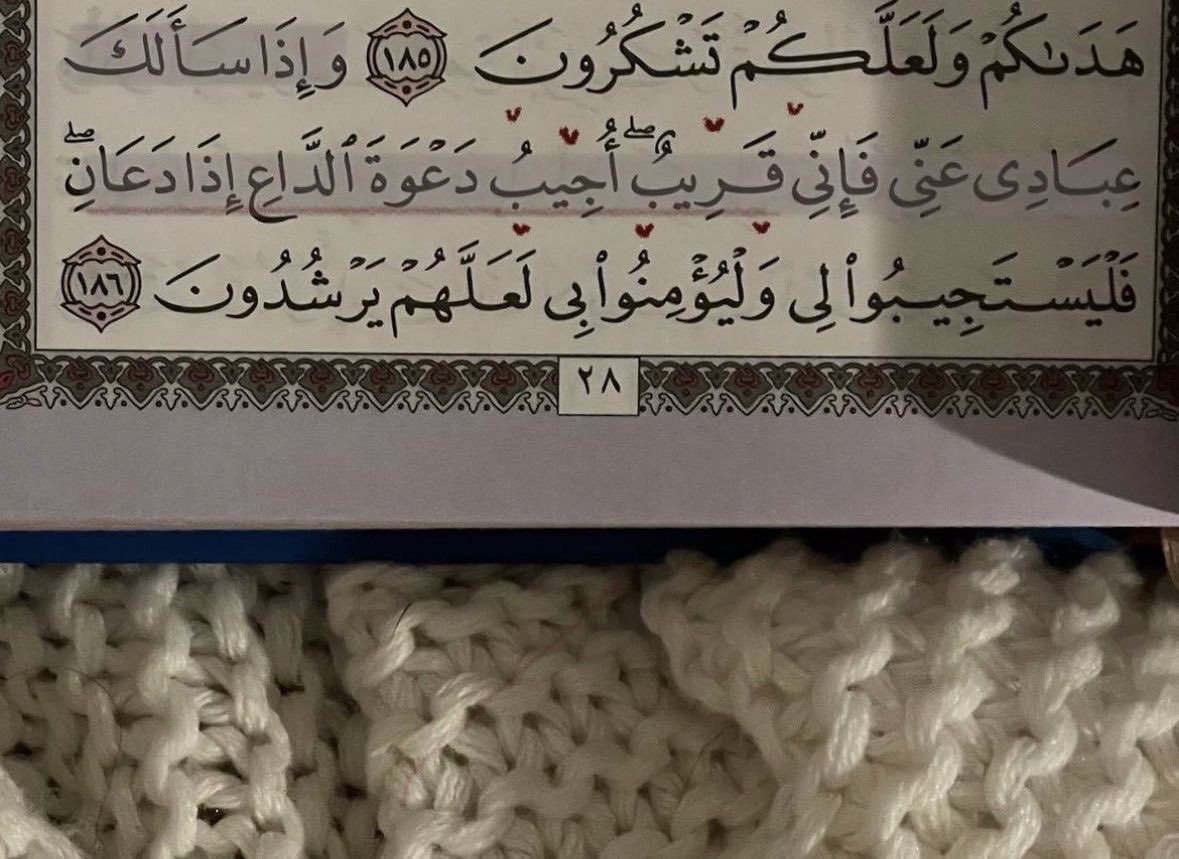 هَدَىٰكُمْ وَلَعَلَّكُمْ تَشْكُرُونَ ١٨٥ وَإِذَا سَأَلَكَ
عِبَادِى عَنِّى فَإِنِّى قَرِيبٌ ۖ أُجِيبُ دَعْوَةَ ٱلدَّاعِ إِذَا دَعَانِ ۖ
فَلْيَسْتَجِيبُوا۟ لِى وَلْيُؤْمِنُوا۟ بِى لَعَلَّهُمْ يَرْشُدُونَ ١٨٦
٢٨